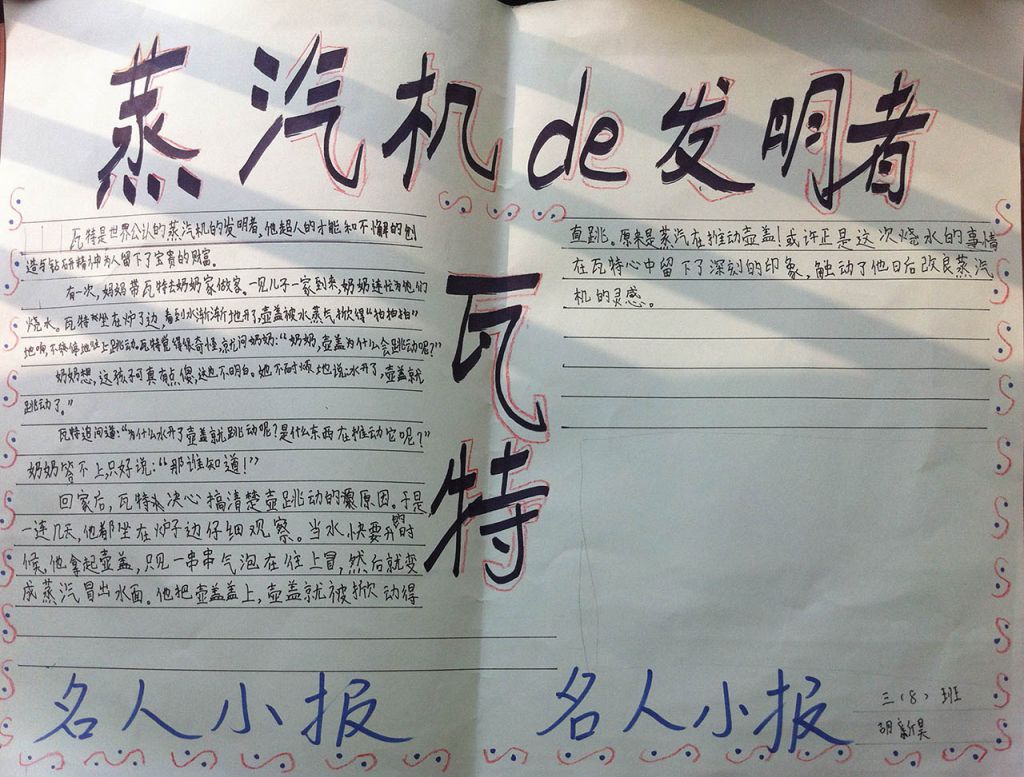 蒸汽机de发明者
瓦特
瓦特是世界公认的蒸汽机的发明者。他超人的才能和不懈的创
造与钻研精神为人留下了宝贵的财富。
有一次,妈妈带瓦特去奶奶家做客。一见儿子一家到来,奶奶连忙为他们
烧水。瓦特坐在炉子边,看到水渐渐地开了,壶盖被水蒸气掀得"拍拍拍"
地响,不停地往上跳动。瓦特觉得很奇怪,就问奶奶:"奶奶,壶盖为什么会跳动呢?"
奶奶想,这孩子可真有点傻,这也不明白。她不耐烦地说:水开了,壶盖就
跳动了。"
瓦特追问道:"为什么水开了壶盖就跳动呢?是什么东西在推动它呢?"
奶奶答不上,只好说:"那谁知道!"
回家后,瓦特决心搞清楚壶跳动的原因。于是
一连几天,他都坐在炉子边仔细观察。当水快要开的时
候,他拿起壶盖,只见一串串气泡在往上冒,然后就变
成蒸汽冒出水面。他把壶盖盖上,壶盖就被掀动得
直跳。原来是蒸汽在推动壶盖!或许正是这次烧水的事情
在瓦特心中留下了深刻的印象,触动了他日后改良蒸汽
机的灵感。
名人小报
名人小报
三(8)班
胡新昊